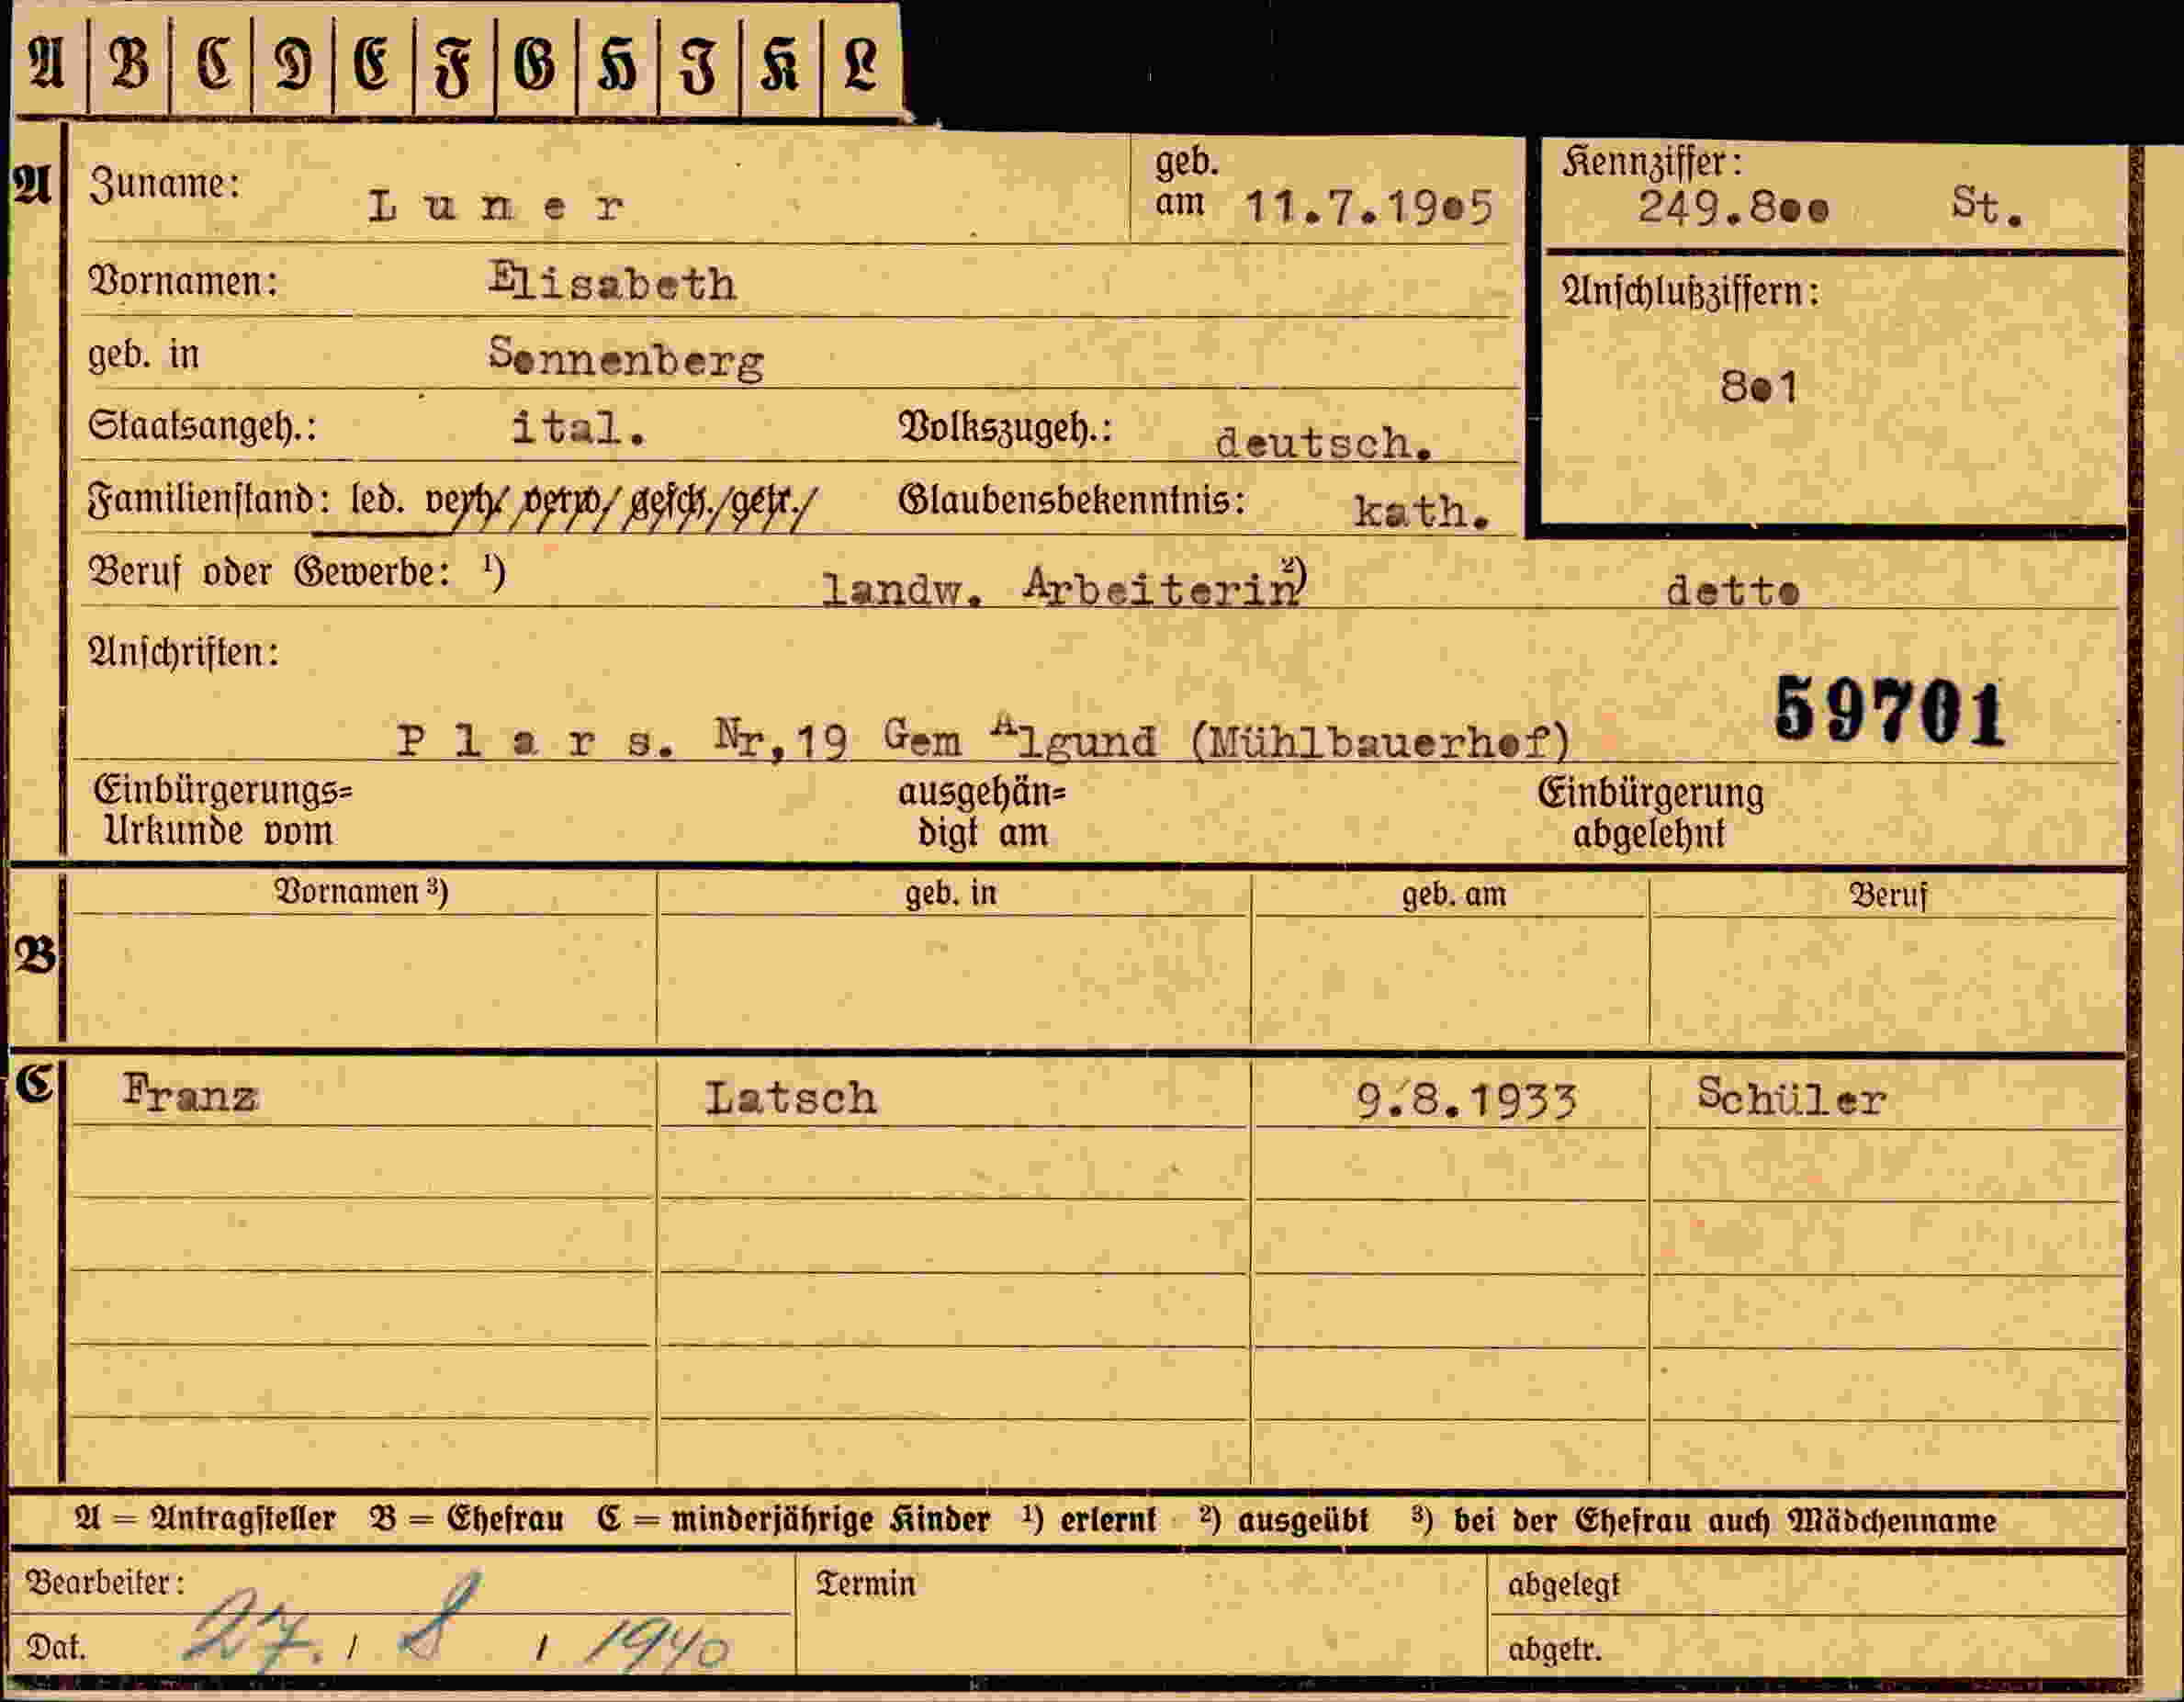 A B C D E F G H I K L
A Zuname: Luner geb. am 11.7.1905 Kennziffer: 249.800 St.
Vornamen: Elisabeth Anschlußziffern:
geb. in Sonnenberg 801
Staatsangeh.: ital. Volkszugeh.: deutsch.
Familienstand: led. verh/ verw/ gesch./getr./ Glaubensbekenntnis: kath.
Beruf oder Gewerbe: ¹) landw. Arbeiterin ²) detto
Anschriften:
59701
Plars. Nr,19 Gem Algund (Mühlbauerhof)
Einbürgerungs= ausgehän= Einbürgerung
Urkunde vom digt am abgelehnt
Vornamen ³) geb. in geb. am Beruf
B
C Franz Latsch 9.8.1933 Schüler
A = Antragsteller B = Ehefrau C = minderjährige Kinder ¹) erlernt ²) ausgeübt ³) bei der Ehefrau auch Mädchenname
Bearbeiter: Termin abgelegt
Dat. 27. / 8 / 1940 abgetr.